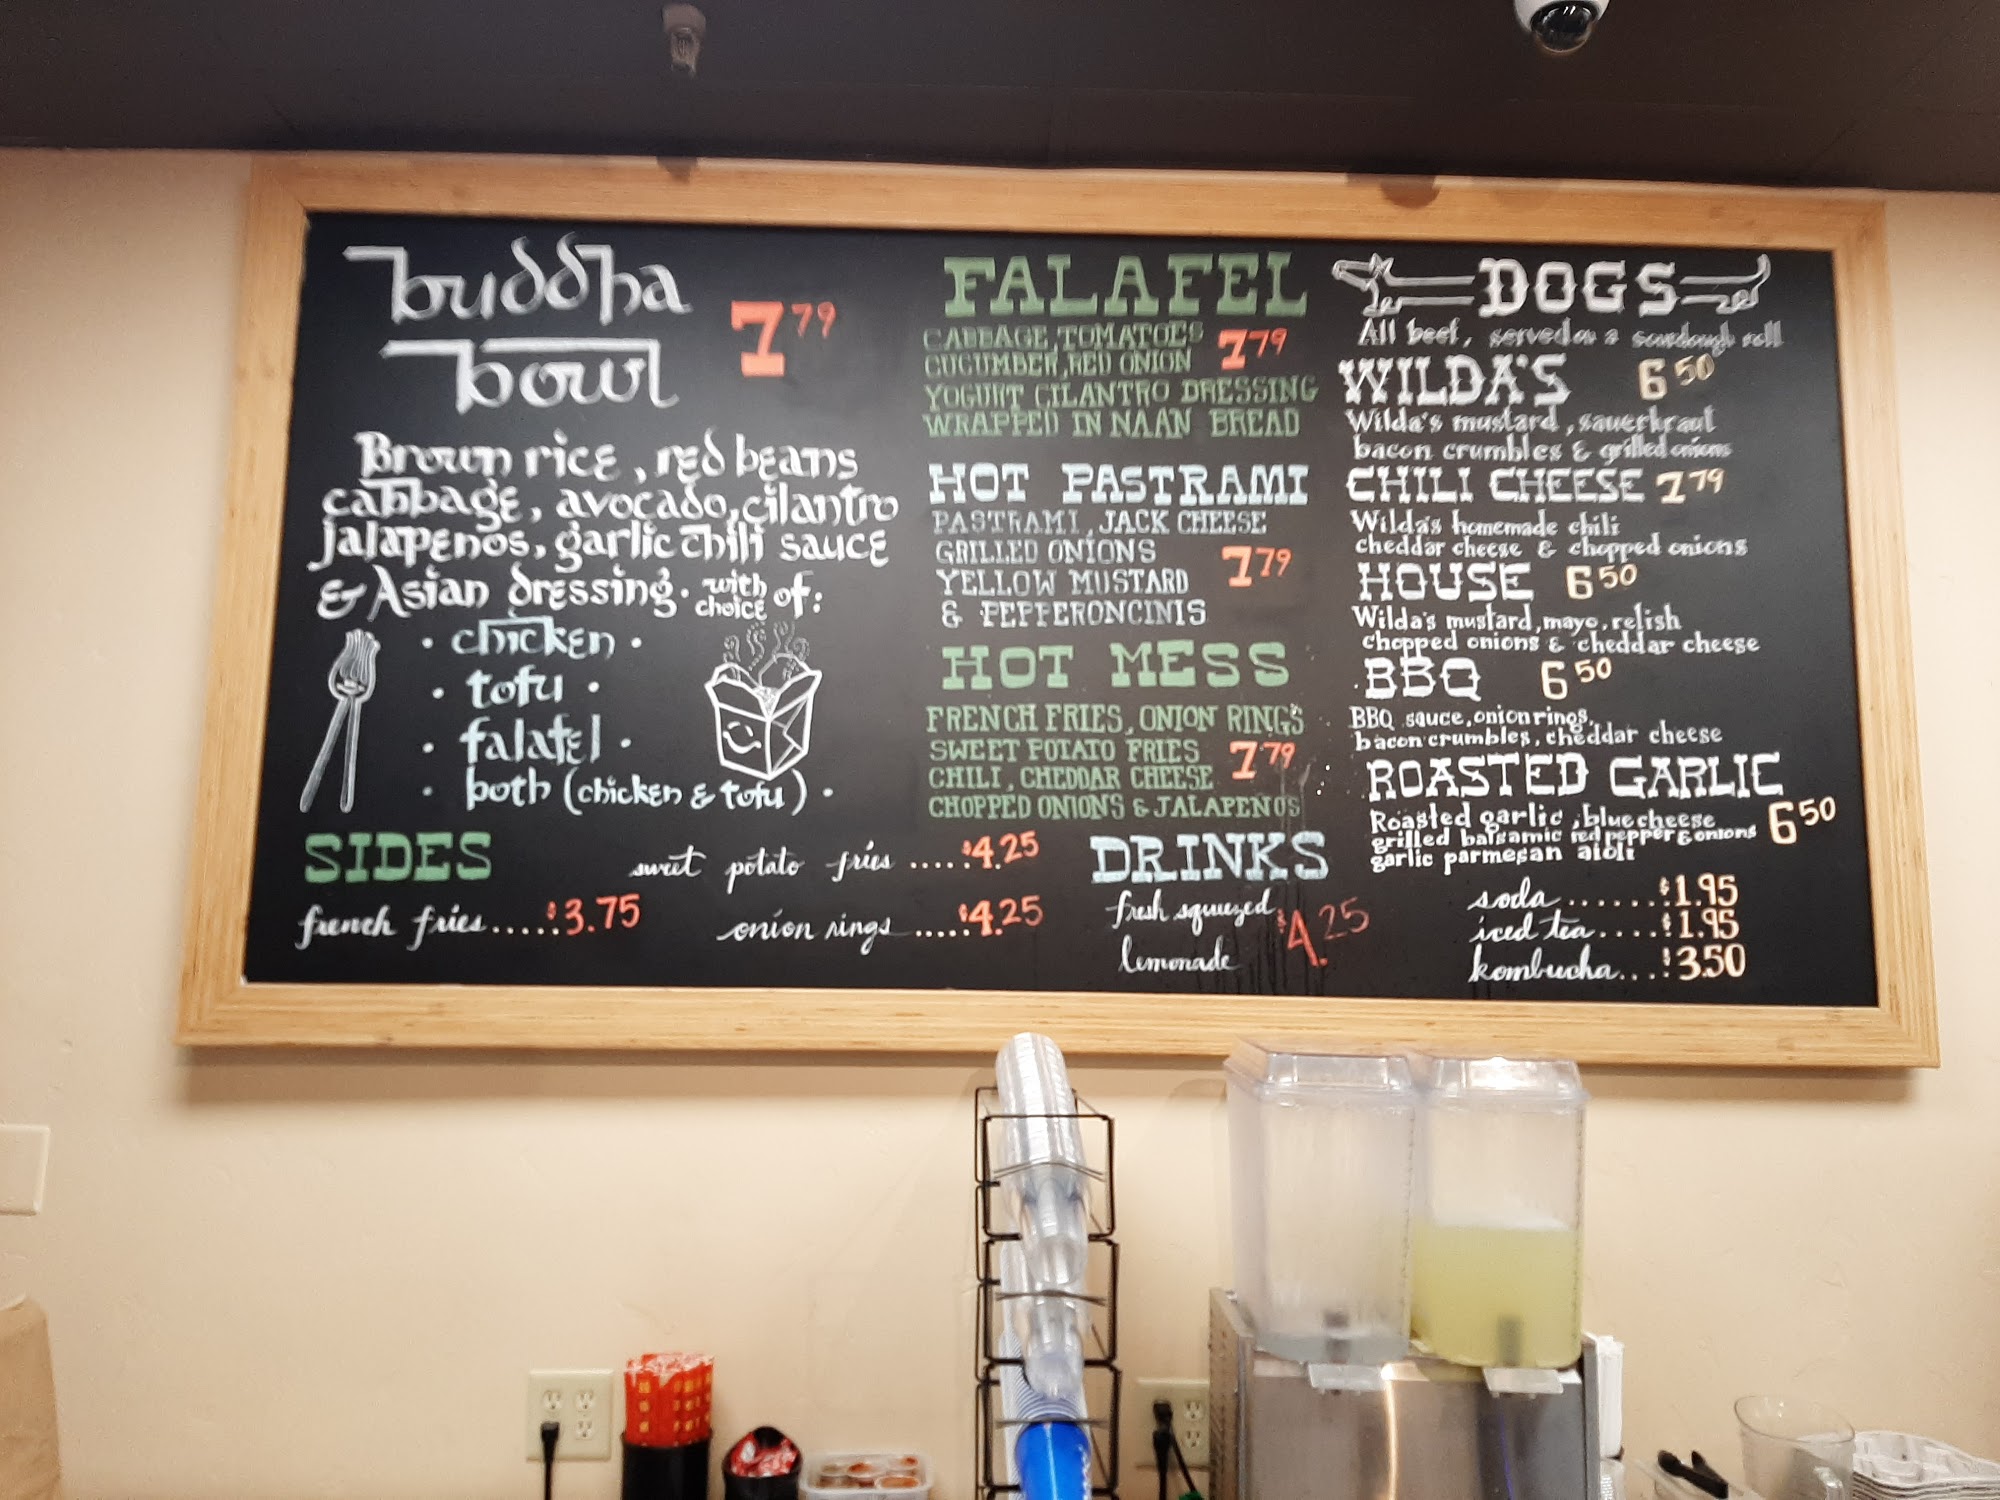 buddha
bowl
7 79
Brown rice, red beans
cabbage, avocado, cilantro
jalapenos, garlic chili sauce
& Asian dressing. with choice of:
• chicken •
• tofu •
• falafel •
• both (chicken & tofu) •
FALAFEL
CABBAGE, TOMATOES
CUCUMBER, RED ONION 7 79
YOGURT CILANTRO DRESSING
WRAPPED IN NAAN BREAD
HOT PASTRAMI
PASTRAMI, JACK CHEESE
GRILLED ONIONS
YELLOW MUSTARD 7 79
& PEPPERONCINIS
HOT MESS
FRENCH FRIES, ONION RINGS
SWEET POTATO FRIES 7 79
CHILI, CHEDDAR CHEESE
CHOPPED ONIONS & JALAPEÑOS
DOGS
All beef, served on a sourdough roll
WILDA'S 6 50
Wilda's mustard, sauerkraut
bacon crumbles & grilled onions
CHILI CHEESE 7 79
Wilda's homemade chili
cheddar cheese & chopped onions
HOUSE 6 50
Wilda's mustard, mayo, relish
chopped onions & cheddar cheese
BBQ 6 50
BBQ sauce, onion rings,
bacon crumbles, cheddar cheese
ROASTED GARLIC
Roasted garlic, blue cheese
grilled balsamic red pepper & onions 6 50
garlic parmesan aioli
SIDES
french fries.....$3.75
sweet potato fries ....$4.25
onion rings .....$4.25
DRINKS
fresh squeezed
lemonade $4.25
soda ......$1.95
iced tea....$1.95
kombucha...$3.50